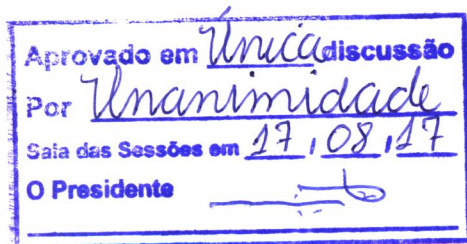 Aprovado em Única discussão
Por Unanimidade
Sala das Sessões em 17, 08, 17
O Presidente